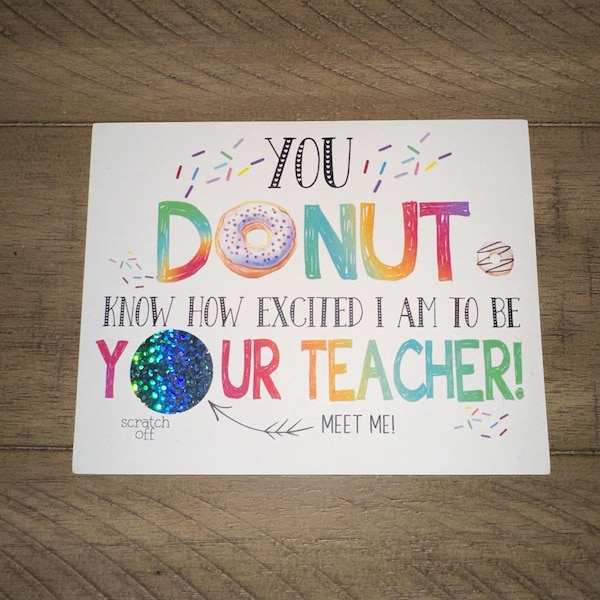 YOU
DONUT
KNOW HOW EXCITED I AM TO BE
YOUR TEACHER!
scratch
off
MEET ME!